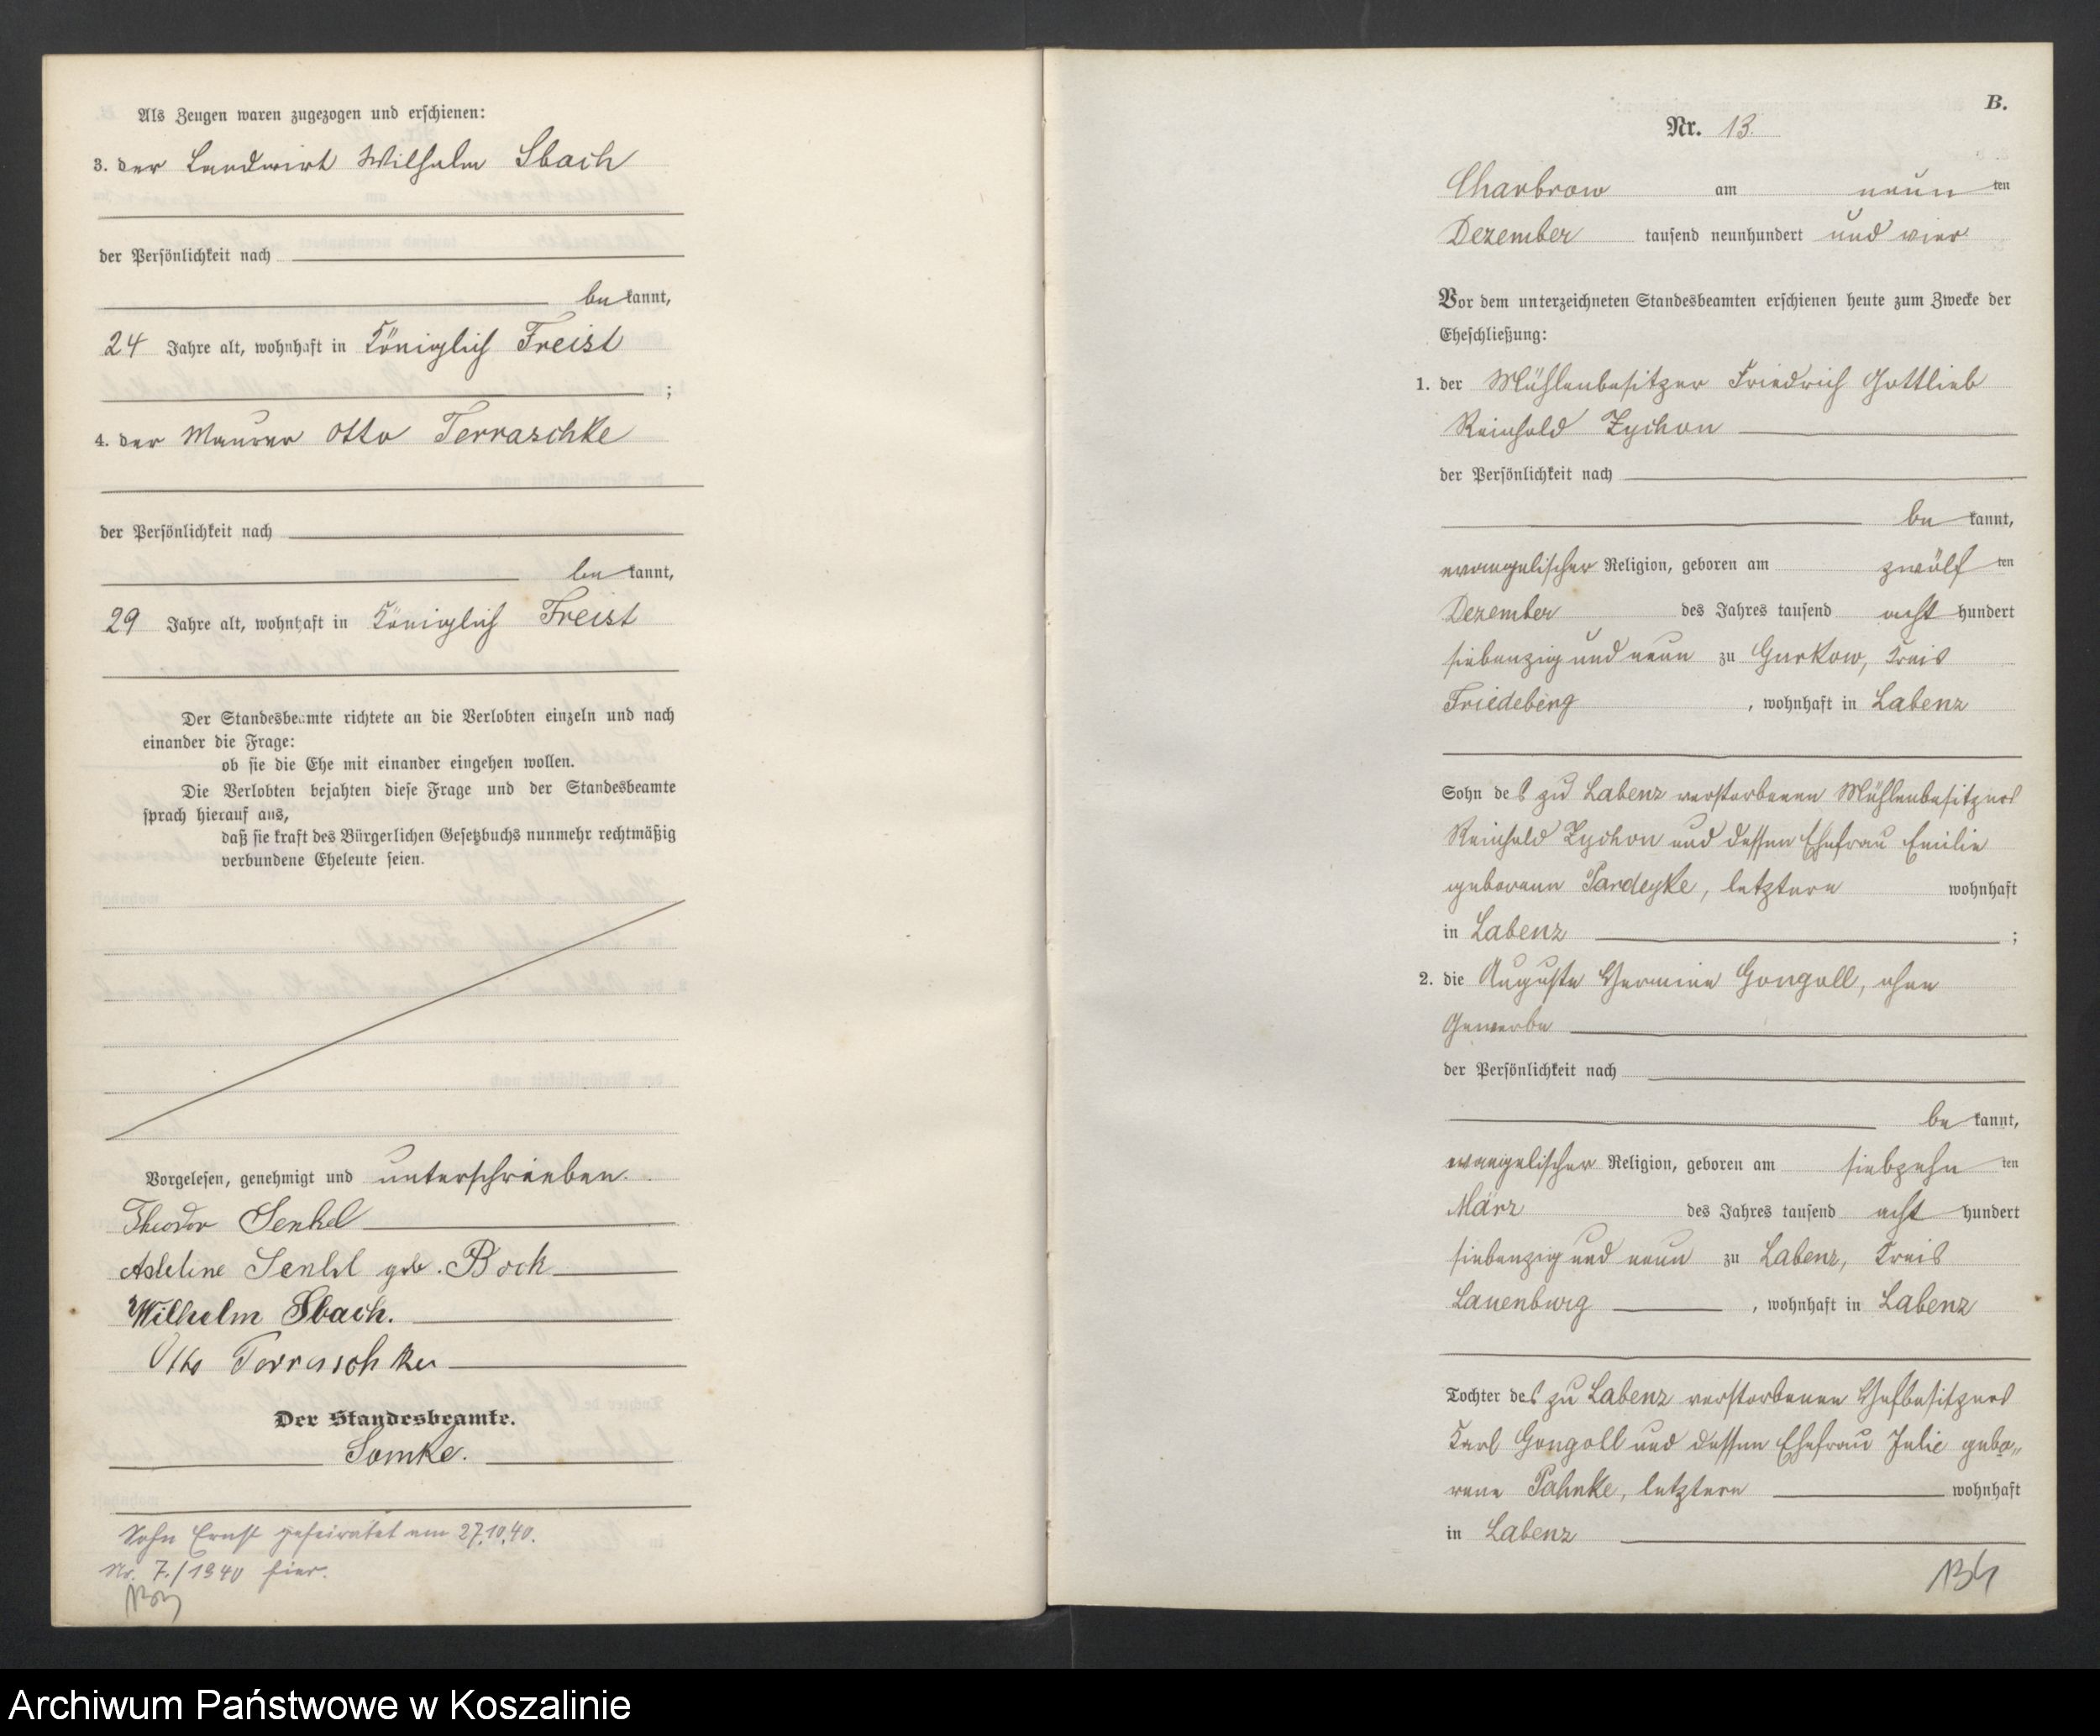 Als Zeugen waren zugezogen und erschienen:
3. der Landwirt Wilhelm Sbach
der Persönlichkeit nach
be kannt,
24 Jahre alt, wohnhaft in Königlich Freist
;
4. der Maurer Otto Terraschke
der Persönlichkeit nach
be kannt,
29 Jahre alt, wohnhaft in Königlich Freist
Der Standesbeamte richtete an die Verlobten einzeln und nach
einander die Frage:
ob sie die Ehe mit einander eingehen wollen.
Die Verlobten bejahten diese Frage und der Standesbeamte
sprach hierauf aus,
daß sie kraft des Bürgerlichen Gesetzbuchs nunmehr rechtmäßig
verbundene Eheleute seien.
Vorgelesen, genehmigt und unterschrieben.
Theodor Senkel
Adeline Senkel geb. Bock
Wilhelm Sbach.
Otto Terraschke
Der Standesbeamte.
Somke.
Sohn Ernst geheiratet am 27.10.40.
Nr. 7./1940 hier.
B.
Nr. 13.
Charbrow am neun ten
Dezember tausend neunhundert und vier
Vor dem unterzeichneten Standesbeamten erschienen heute zum Zwecke der
Eheschließung:
1. der Mühlenbesitzer Friedrich Gottlieb
Reinhold Zychon
der Persönlichkeit nach
be kannt,
evangelischer Religion, geboren am zwölf ten
Dezember des Jahres tausend acht hundert
siebenzig und neun zu Gurkow, Kreis
Friedeberg , wohnhaft in Labenz
Sohn des zu Labenz verstorbenen Mühlenbesitzers
Reinhold Zychon und dessen Ehefrau Emilie
geborene Pardeyke, letztere wohnhaft
in Labenz ;
2. die Auguste Hermine Gongoll, ohne
Gewerbe
der Persönlichkeit nach
be kannt,
evangelischer Religion, geboren am siebzehn ten
März des Jahres tausend acht hundert
siebenzig und neun zu Labenz, Kreis
Lauenburg , wohnhaft in Labenz
Tochter des zu Labenz verstorbenen Hofbesitzers
Karl Gongoll und dessen Ehefrau Julie gebo„
rene Pahnke, letztere wohnhaft
in Labenz
134
Archiwum Państwowe w Koszalinie